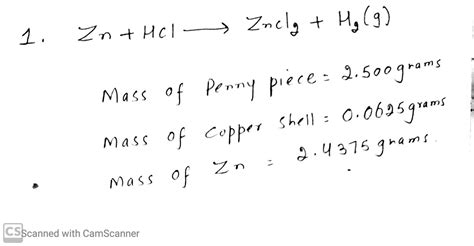 1. Zn + HCl ⟶ Zncl2 + H2(g)
Mass of Penny piece = 2.500grams
Mass of Copper shell = 0.0625grams
Mass of Zn = 2.4375 grams.
CS Scanned with CamScanner